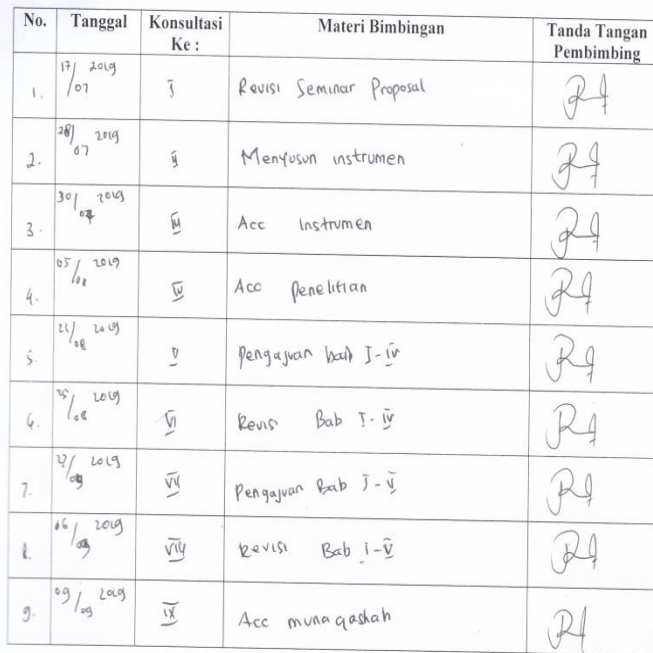 No. Tanggal Konsultasi Ke : Materi Bimbingan Tanda Tangan Pembimbing
1. 17/07 2019 I Revisi Seminar Proposal
2. 28/07 2019 II Menyusun instrumen
3. 30/07 2019 III Acc Instrumen
4. 05/08 2019 IV Acc Penelitian
5. 2019 V Pengajuan bab I-IV
6. 2019 VI Revisi Bab I-IV
7. 2019 VII Pengajuan Bab I-V
8. 06/09 2019 VIII Revisi Bab I-V
9. 09/09 2019 IX Acc munaqashah